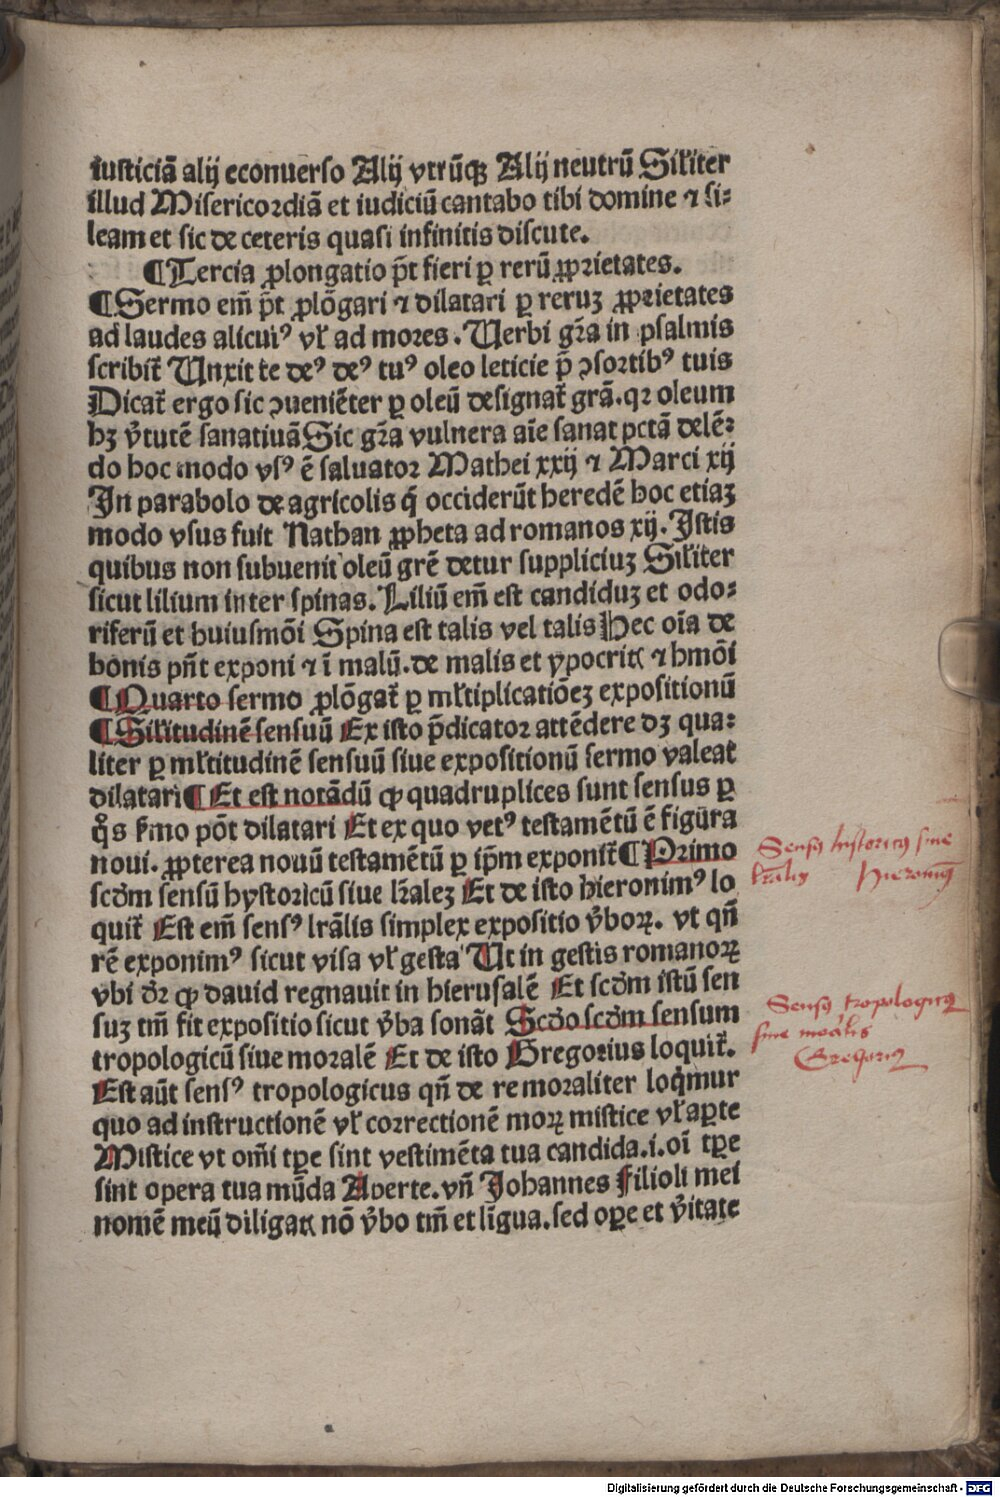 iusticiā alij econuerso Alij vtrūqꝫ Alij neutrū Sił'iter
illud Misericordiā et iudiciū cantabo tibi domine ⁊ si⸗
leam et sic de ceteris quasi infinitis discute.
¶Tercia ꝓlongatio pn̄t fieri ꝑ rerū ꝓprietates.
¶Sermo em̄ pt̄ ꝓlōgari ⁊ dilatari ꝑ reruꝫ ꝓprietates
ad laudes alicui⁹ vł ad mores. Uerbi gr̄a in psalmis
scribit᷑ Unxit te de⁹ de⁹ tu⁹ oleo leticie p̄ ꝯsortib⁹ tuis
Dicat᷑ ergo sic ꝯueniēter ꝑ oleū designat᷑ grā. qꝛ oleum
hꝫ v̓tutē sanatiuā Sic gr̄a vulnera aīe sanat pctā delē⸗
do hoc modo vs⁹ ē saluator Mathei xxij ⁊ Marci xij
In parabolo de agricolis q̄ occiderūt heredē hoc etiaꝫ
modo vsus fuit Nathan ꝓpheta ad romanos xij. Istis
quibus non subuenit oleū grē detur suppliciuꝫ Sił'iter
sicut lilium inter spinas. Liliū em̄ est candiduꝫ et odo⸗
riferū et huiusmōi Spina est talis vel talis Hec oīa de
bonis pn̄t exponi ⁊ ī malū. de malis et ypocritꝭ ⁊ hmōi
¶Quarto sermo ꝓlōgat᷑ ꝑ mł'tiplicatiōeꝫ expositionū
¶Sił'itudinē sensuū Ex isto p̄dicator attēdere dꝫ qua⸗
liter ꝑ mł'titudinē sensuū siue expositionū sermo valeat
dilatari ¶Et est notādū ꝙ quadruplices sunt sensus ꝑ
q̊s s̓mo pōt dilatari Et ex quo vet⁹ testamētū ē figura
noui. ꝓpterea nouū testamētū ꝑ ip̄m exponit᷑ ¶Primo
scd̄m sensū hystoricū siue lr̄aleꝫ Et de isto hieronim⁹ lo
quit᷑ Est em̄ sens⁹ lrālis simplex expositio v̓boꝝ. vt qn̄
rē exponim⁹ sicut visa vł gesta Ut in gestis romanoꝝ
vbi dr̄ ꝙ dauid regnauit in hierusalē Et scd̄m istū sen
suꝫ tm̄ fit expositio sicut v̓ba sonāt Scd̄o scd̄m sensum
tropologicū siue moralē Et de isto Gregorius loquit᷑.
Est aūt sens⁹ tropologicus qn̄ de re moraliter loq̇mur
quo ad instructionē vł correctionē moꝝ mistice vł aꝑte
Mistice vt om̄i tꝑe sint vestimēta tua candida. i. oī tꝑe
sint opera tua mūda Aperte. vn̄ Johannes Filioli mei
nomē meū diligatꝭ nō v̓bo tm̄ et līgua. sed oꝑe et v̓itate
Sensꝯ historicꝯ siue
lr̄alis Hieronimꝯ
Sensꝯ tropologicꝯ
siue moralis
Gregoriꝯ
Digitalisierung gefördert durch die Deutsche Forschungsgemeinschaft - DFG